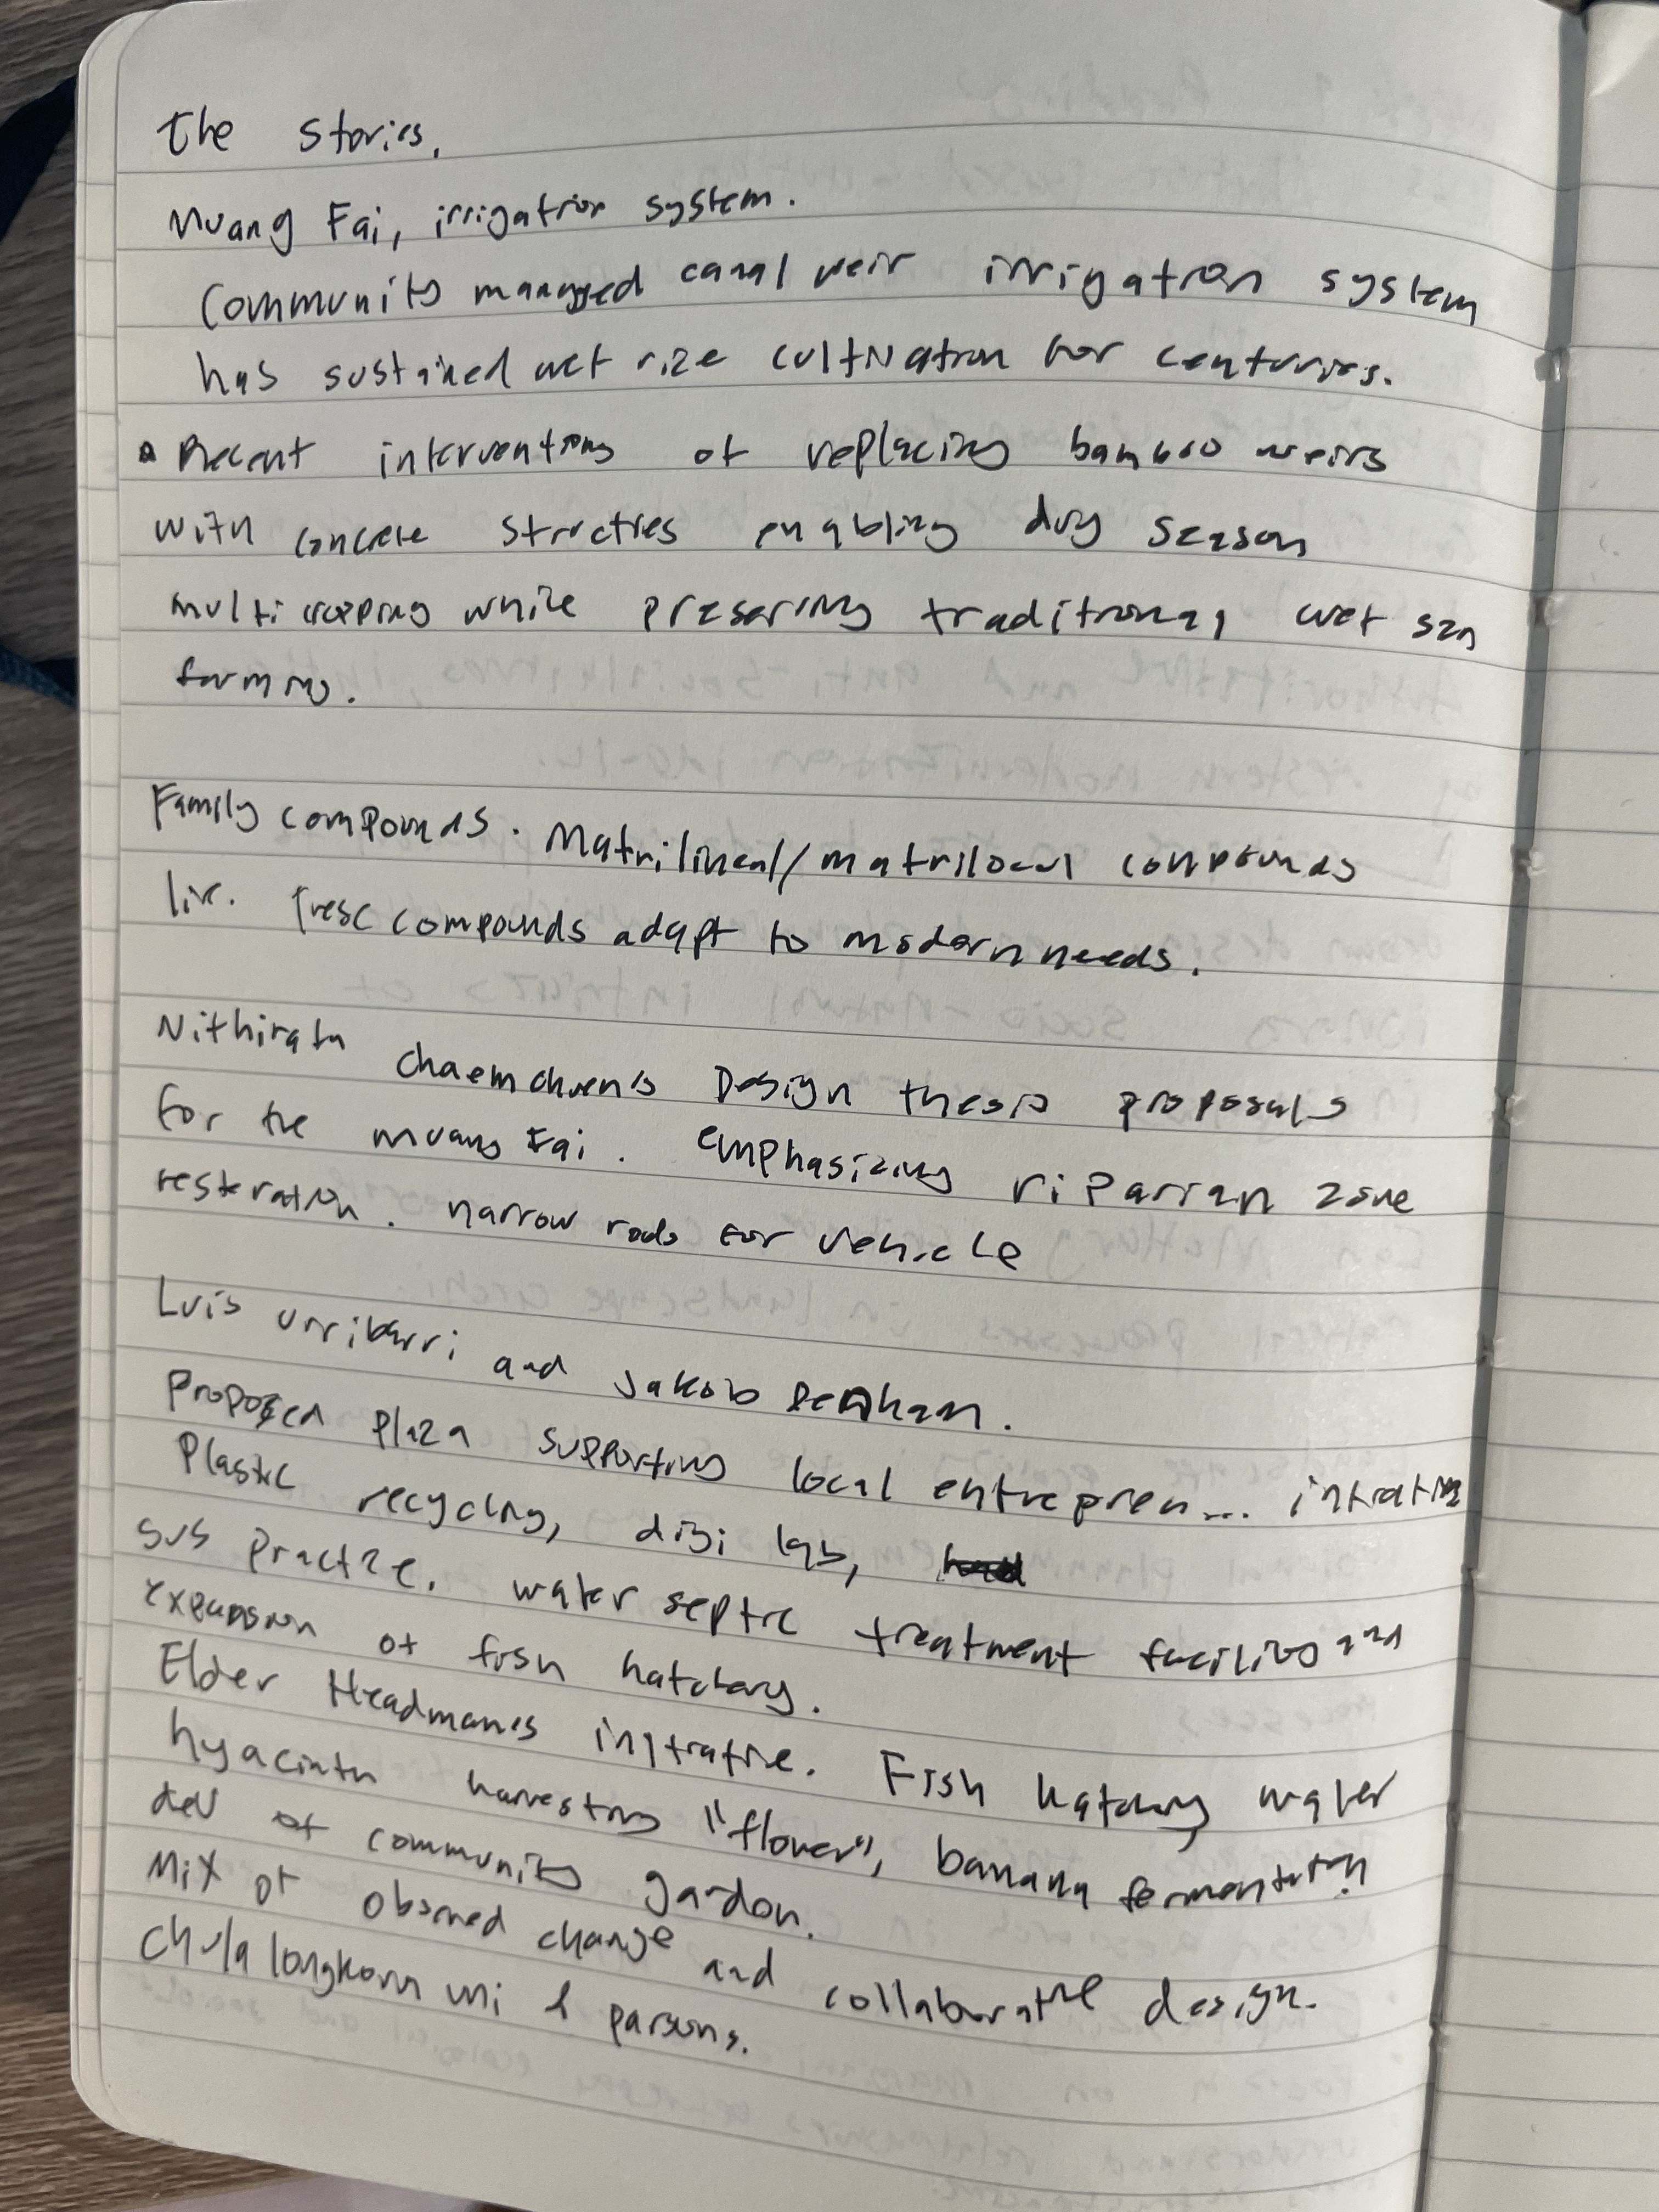 The stories.
Muang Fai, irrigation system.
Community managed canal weir irrigation system
has sustained wet rize cultivation for centuries.
Recent interventions of replacing bamboo weirs
with concrete structres enabling dry season
multi cropping while presering traditional wet
farming.
Family compounds. Matrilineal/matrilocal compounds
liv. These compounds adapt to modern needs.
Nithiratn Chaemchuen's Design thesis proposals
for the muang Fai. emphasizing riparian zone
restoration. narrow rods for vehicle
Luis Urribarri and Jakob Denham.
Proposed plaza supporting local entrepren...
Plastic recycling, digi lab,
sus practize. water septic treatment facility and
expansion of fish hatchery.
Elder Headmanes initiative. Fish hatchery water
hyacinth harvesting "flower", banana fermentation
dev of community garden.
Mix of observed change and collaborative design.
Chulalongkorn uni & parsons.